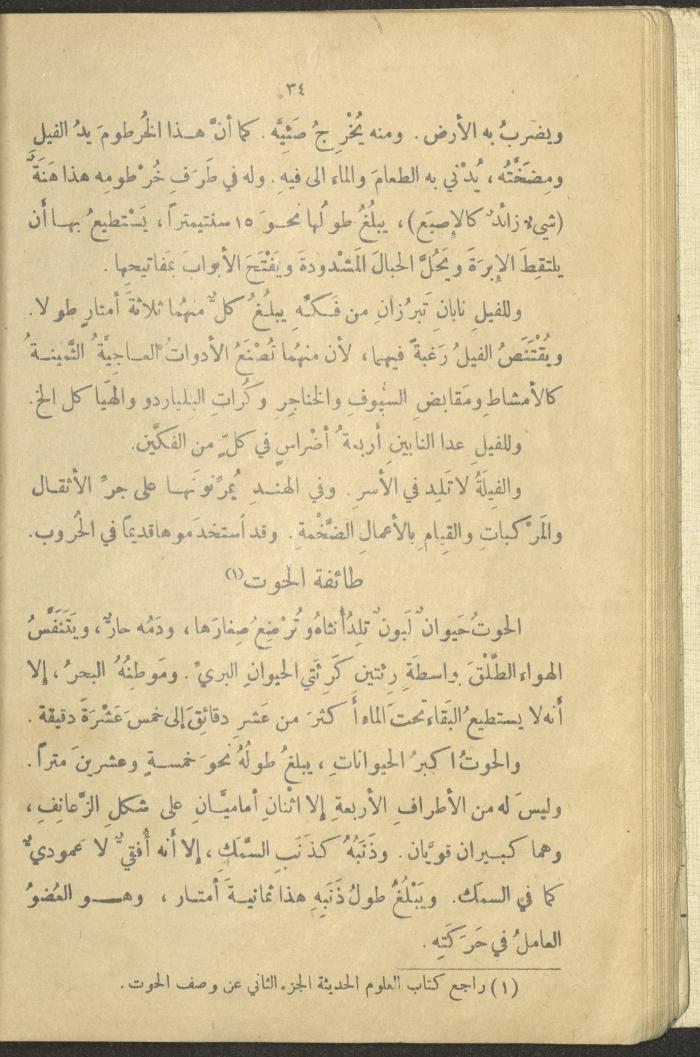 ٣٤
ويضربُ به الأرض. ومنه يُخْرِجُ صَئِيَّه. كما أنَّ هــذا الخُرطومَ يدُ الفيل
ومِضَخَّتُه، يُدْني به الطعامَ والماء الى فيهِ. وله في طَرَفِ خُرْطومِه هذا هَنَةٌ
(شيءٌ زائدٌ كالإِصبَع)، يبلُغُ طولُها نحــوَ ١٥ سنتيمتراً، يَسْتطيعُ بهــا أن
يلتقِطَ الإِبرَةَ ويَحُلَّ الحبالَ المَشْدودةَ ويَفْتَحَ الأبوابَ بمَفاتيحِها.
وللفيلِ نابانِ تَبرُزانِ من فَــكَّهِ يبلُــغُ كلٌّ منهُما ثلاثةَ أمتارٍ طولا.
ويُقْتَنَصُ الفيلُ رَغبةً فيهِما، لأن منهُما تُصْنَعُ الأدواتُ العــاجيَّةُ الثَّمينــةُ
كالأمشاطِ ومَقابضِ السُّيوفِ والخناجِرِ وكُراتِ البلياردو والهَياكل الخ.
وللفيلِ عدا النابَينِ أربعةُ أضْراسٍ في كلٍّ من الفكَّين.
والفِيَلَةُ لا تَلِد في الأسرِ. وفي الهنــدِ يُمرِّنونَهــا على جرِّ الأثقــال
والمَرْكباتِ والقِيامِ بالأعمالِ الضَّخْمةِ. وقد اُستخدَموها قديماً في الحُروب.
طائفة الحوت (١)
الحوتُ حَيوانٌ لَبونٌ تلِدُ أُنثاهُ وتُرْضِعُ صِغارَها، ودَمُه حارٌّ، ويَتَنَفَّسُ
الهواء الطَّلْقَ بواسطَةِ رِئتينِ كَرِئَتَيِ الحيوانِ البريِّ. ومَوطِنُهُ البحرُ، إلا
أنه لا يستطيعُ البَقاء تحتَ الماء أكثرَ من عَشرِ دقائِقَ إلى خمسَ عَشْرَةَ دقيقة.
والحوتُ اكبرُ الحيواناتِ، يبلغُ طولُهُ نحوَ خمســةٍ وعشرينَ متراً.
وليسَ له من الأطرافِ الأربعةِ إلا اثْنانِ أماميَّــانِ على شكلِ الزَّعانِفِ،
وهما كبــيران قويَّان. وذَنَبُهُ كذَنَبِ السَّمَكِ، إلا أنه أُفقيٌّ لا عَموديٌّ
كما في السمَك. ويَبْلُغُ طولُ ذَنَبِهِ هذا ثمانيــةَ أمتــار، وهــو العُضوُ
العاملُ في حَرَكَتِهِ.
(١) راجع كتاب العلوم الحديثة الجزء الثاني عن وصف الحوت.